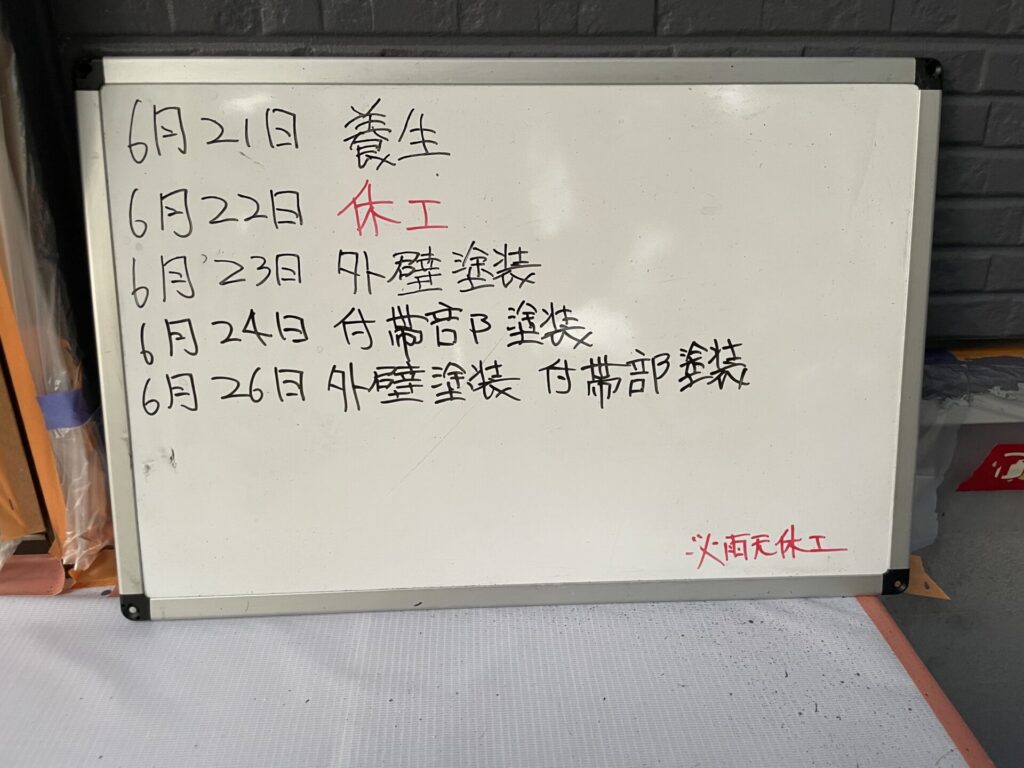 6月21日 養生
6月22日 休工
6月23日 外壁塗装
6月24日 付帯部塗装
6月26日 外壁塗装 付帯部塗装
※雨天休工